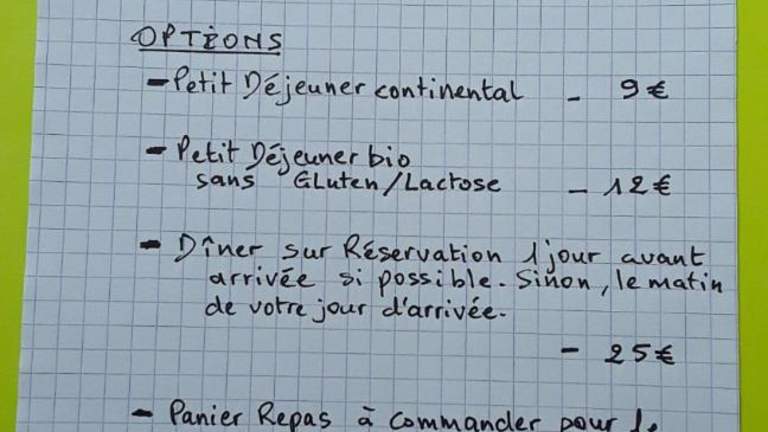 OPTIONS
- Petit Déjeuner continental - 9€
- Petit Déjeuner bio
sans Gluten/Lactose - 12€
- Dîner sur Réservation 1 jour avant
arrivée si possible. Sinon, le matin
de votre jour d'arrivée.
- 25€
- Panier Repas à commander pour le